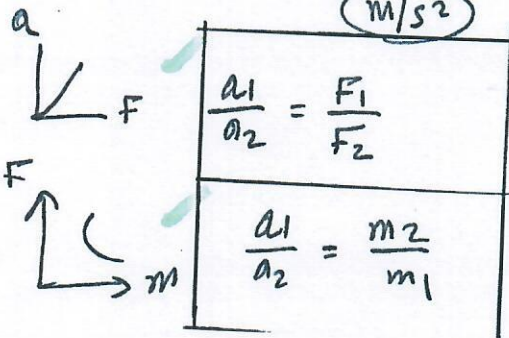 m/s2
a
F
a1/a2 = F1/F2
F
m
a1/a2 = m2/m1